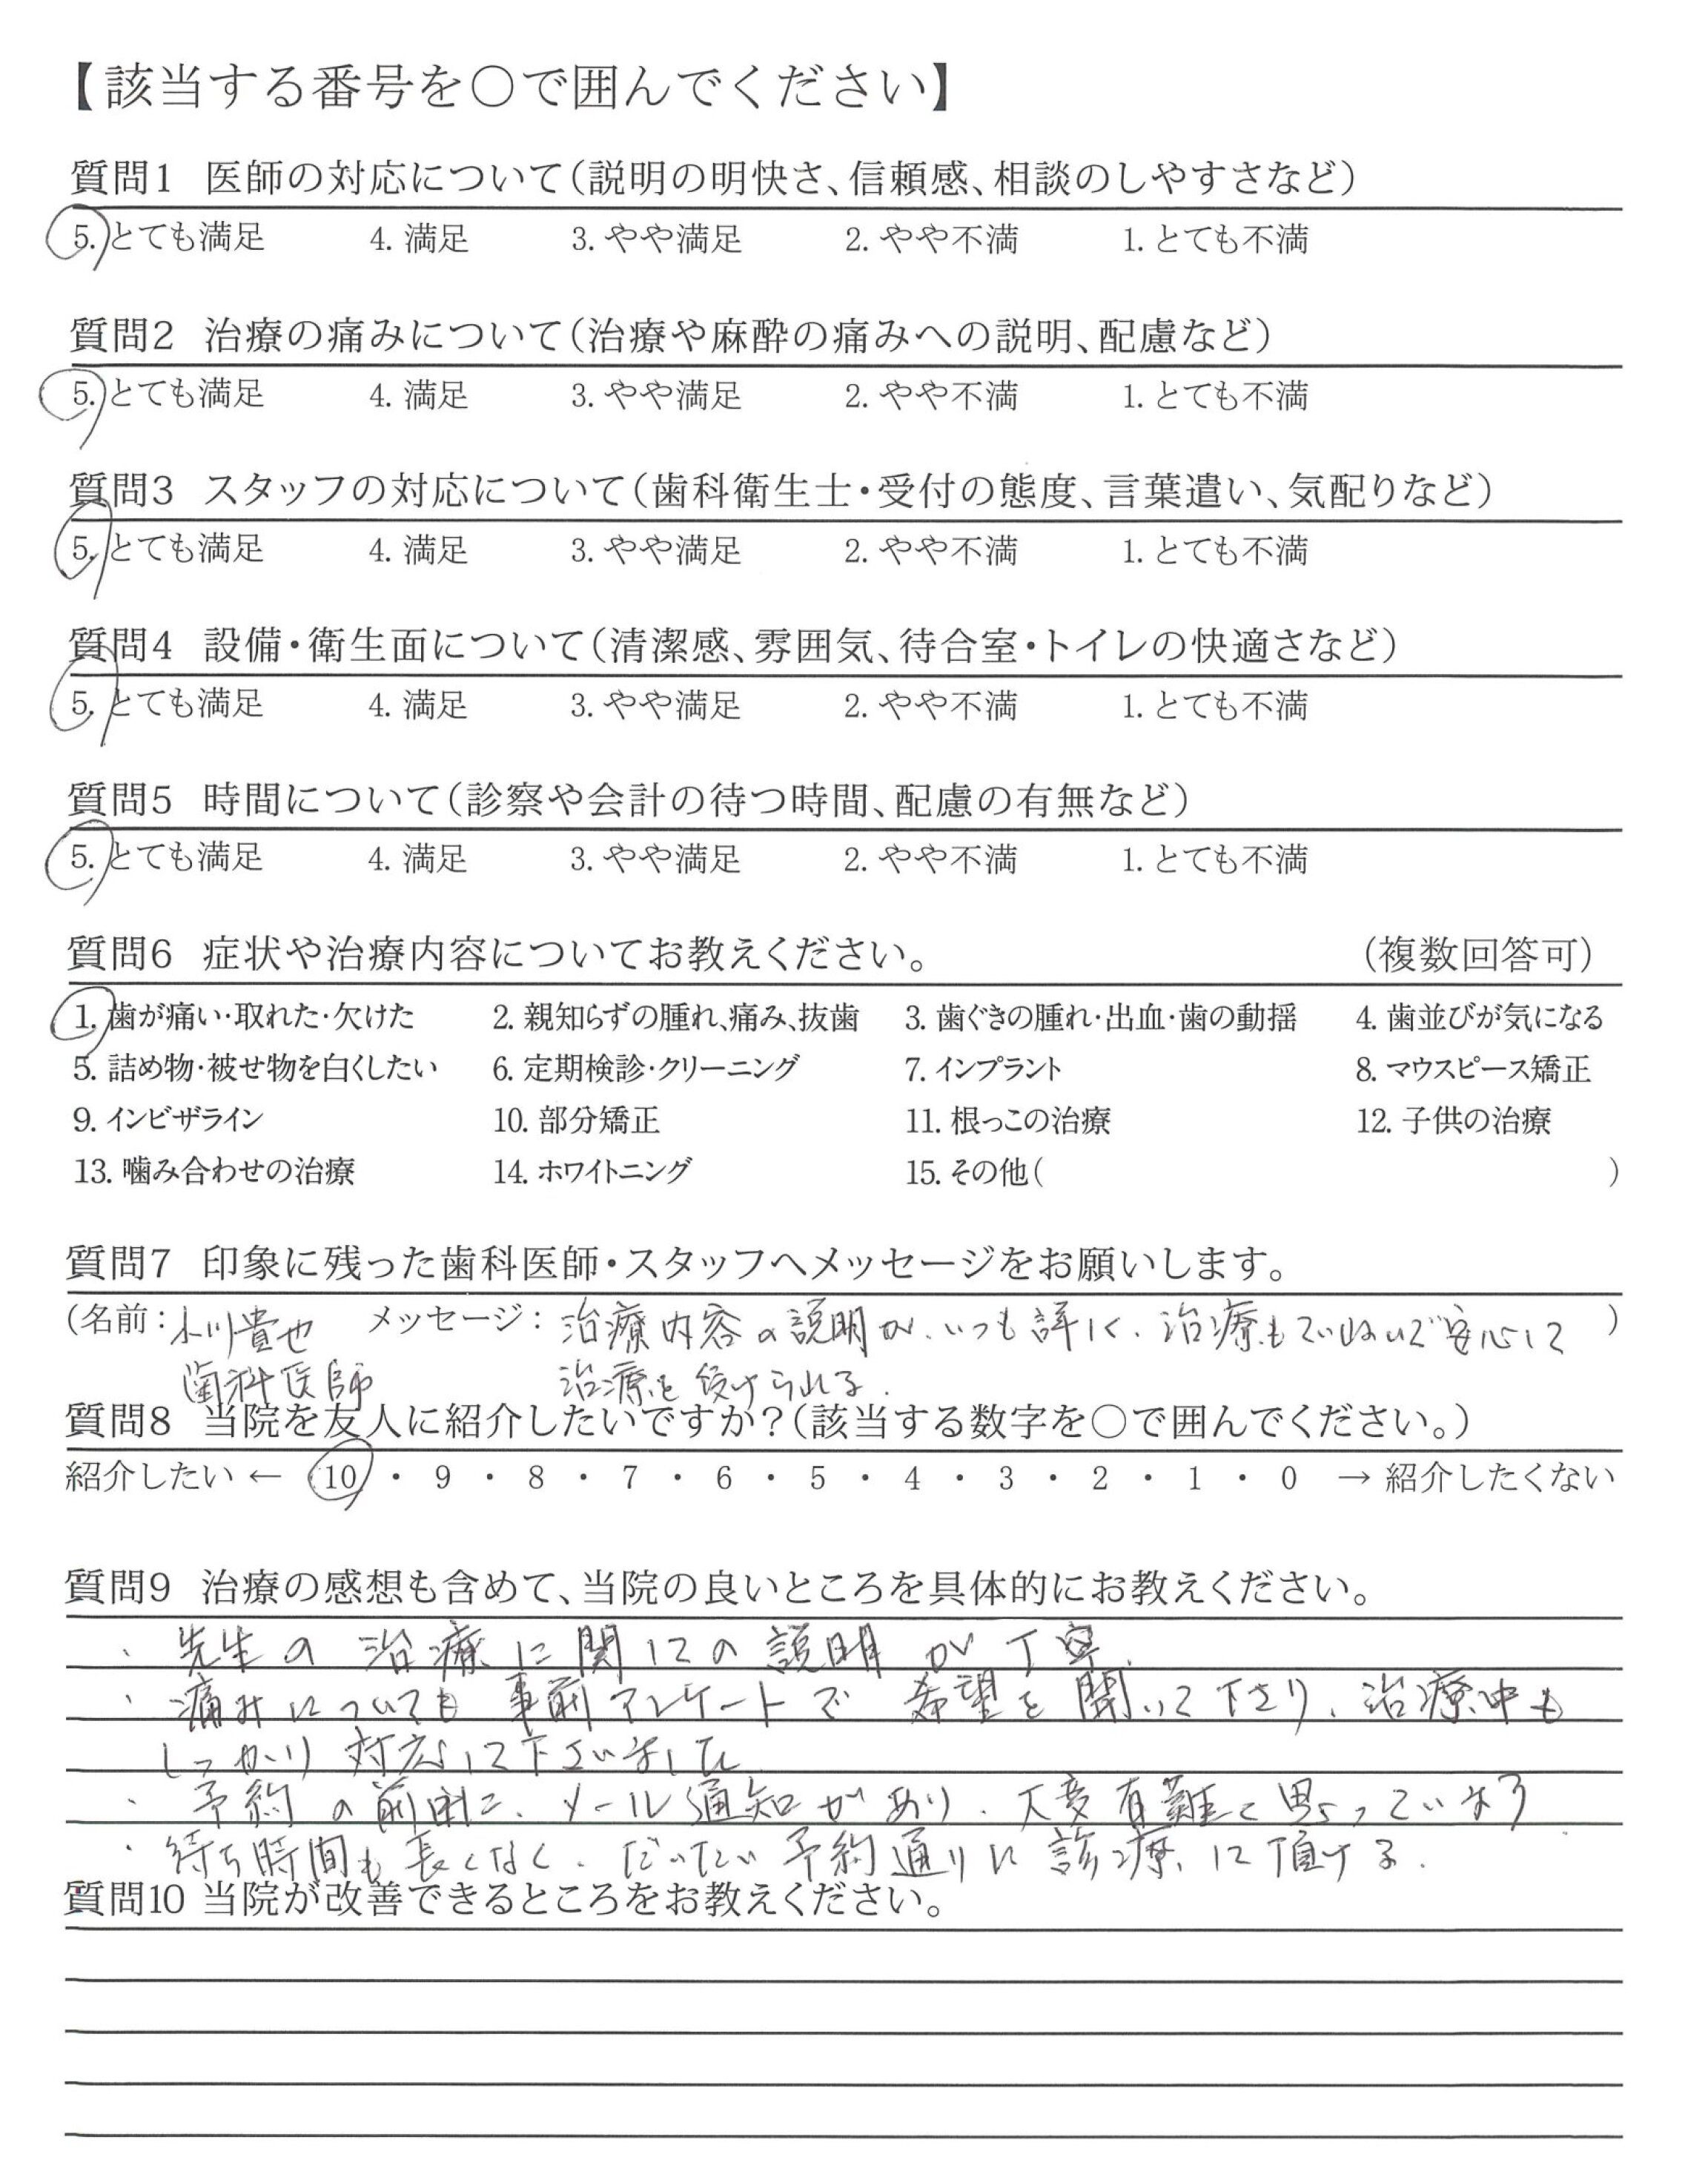 【該当する番号を○で囲んでください】
質問1 医師の対応について(説明の明快さ、信頼感、相談のしやすさなど)
5. とても満足 4. 満足 3. やや満足 2. やや不満 1. とても不満
質問2 治療の痛みについて(治療や麻酔の痛みへの説明、配慮など)
5. とても満足 4. 満足 3. やや満足 2. やや不満 1. とても不満
質問3 スタッフの対応について(歯科衛生士・受付の態度、言葉遣い、気配りなど)
5. とても満足 4. 満足 3. やや満足 2. やや不満 1. とても不満
質問4 設備・衛生面について(清潔感、雰囲気、待合室・トイレの快適さなど)
5. とても満足 4. 満足 3. やや満足 2. やや不満 1. とても不満
質問5 時間について(診察や会計の待つ時間、配慮の有無など)
5. とても満足 4. 満足 3. やや満足 2. やや不満 1. とても不満
質問6 症状や治療内容についてお教えください。 (複数回答可)
1. 歯が痛い・取れた・欠けた 2. 親知らずの腫れ、痛み、抜歯 3. 歯ぐきの腫れ・出血・歯の動揺 4. 歯並びが気になる
5. 詰め物・被せ物を白くしたい 6. 定期検診・クリーニング 7. インプラント 8. マウスピース矯正
9. インビザライン 10. 部分矯正 11. 根っこの治療 12. 子供の治療
13. 噛み合わせの治療 14. ホワイトニング 15. その他( )
質問7 印象に残った歯科医師・スタッフへメッセージをお願いします。
(名前:小川貴也 メッセージ:治療内容の説明が、いつも詳しく、治療もていねいで安心して )
歯科医師 治療を受けられる.
質問8 当院を友人に紹介したいですか?(該当する数字を○で囲んでください。)
紹介したい ← 10 ・ 9 ・ 8 ・ 7 ・ 6 ・ 5 ・ 4 ・ 3 ・ 2 ・ 1 ・ 0 → 紹介したくない
質問9 治療の感想も含めて、当院の良いところを具体的にお教えください。
・先生の治療に関しての説明が丁寧.
・痛みについても事前アンケートで希望を聞いて下さり、治療中も
しっかり対応して下さいました
・予約の前に、メール通知があり、大変有難く思っています
・待ち時間も長くなく、だいたい予約通りに診療して頂ける.
質問10 当院が改善できるところをお教えください。